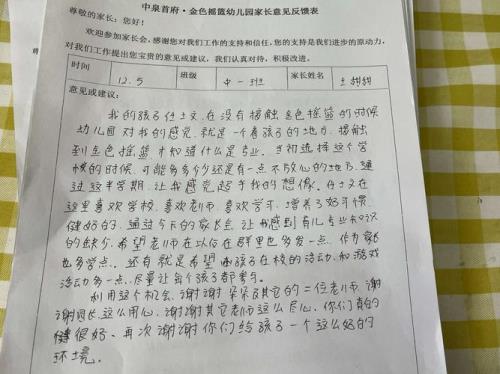 中泉首府·金色摇篮幼儿园家长意见反馈表
尊敬的家长:您好!
欢迎参加家长会,感谢您对我们工作的支持和信任,您的支持是我们进步的原动力,
对我们工作提出您宝贵的意见或建议,我们认真对待,积极改进。
时间 12.5 班级 中一班 家长姓名 王甜甜
意见或建议:
我的孩子任士文,在没有接触金色摇篮的时候
幼儿园对我的感觉就是一个看孩子的地方,接触
到金色摇篮才知道什么是专业。当初选择这个学
校的时候,可能多多少少还是有一点不放心的地方,通
过这半学期,让我感觉超乎我的想像。任士文在
这里喜欢学校,喜欢老师,喜欢学习,培养了好习惯
健好的,通过今天的家长会,让我感到育儿专业知识
的缺少,希望老师在以后在群里也多发一点,作为家长
也多学点。还有就是希望孩子在校的活动和游戏
活动多一点,尽量让每个孩子都参与。
利用这个机会,谢谢朵朵及其它的二位老师,谢
谢园长这么用心,谢谢其它老师这么尽心,你们真的
很好、再次谢谢你们给孩子一个这么好的
环境。